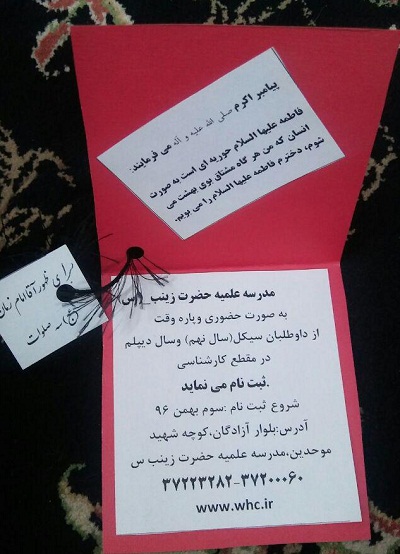 پیامبر اکرم صلی الله علیه و آله می فرمایند:
فاطمه علیها السلام حوریه ای است به صورت
انسان که من هر گاه مشتاق بوی بهشت می
شوم، دخترم فاطمه علیها السلام را می بویم.
برای ظهور آقا امام زمان
(عج) - صلوات
مدرسه علمیه حضرت زینب س
به صورت حضوری وپاره وقت
از داوطلبان سیکل(سال نهم) وسال دیپلم
در مقطع کارشناسی
ثبت نام می نماید.
شروع ثبت نام :سوم بهمن ۹۶
آدرس:بلوار آزادگان،کوچه شهید
موحدین،مدرسه علمیه حضرت زینب س
۳۷۲۲۳۲۸۲-۳۷۲۰۰۰۶۰
www.whc.ir